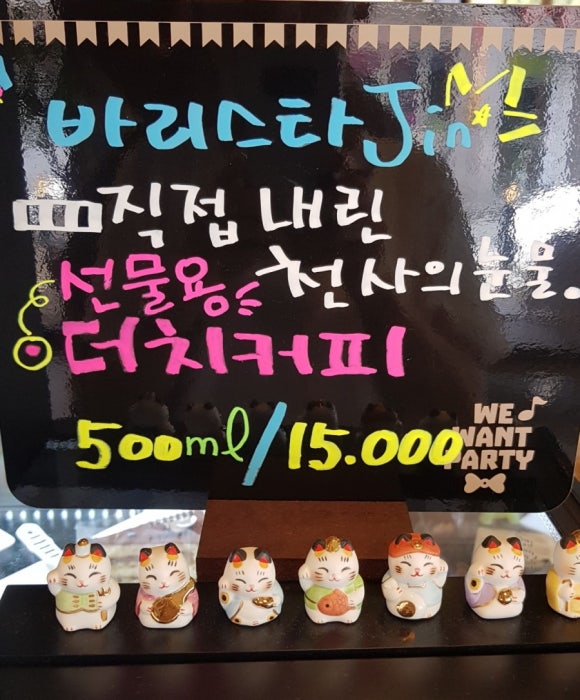 바리스타 Jin
직접 내린
선물용 천사의 눈물.
더치커피
500ml/15.000
WE
WANT
PARTY